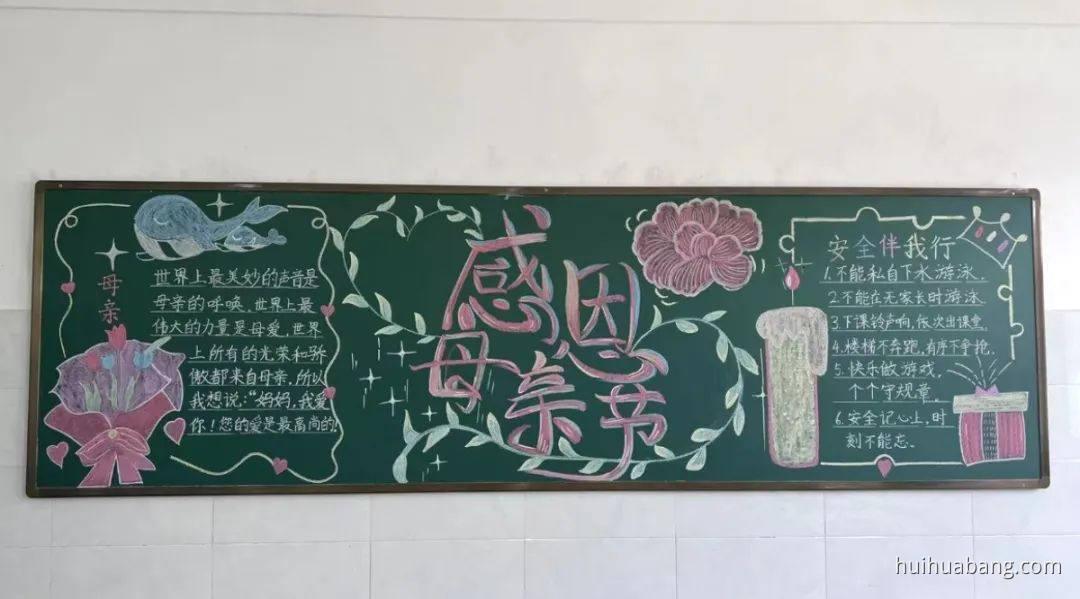 母亲
世界上最美妙的声音是
母亲的呼唤,世界上最
伟大的力量是母爱,世界
上所有的光荣和骄
傲都来自母亲,所以
我想说:“妈妈,我爱
你!您的爱是最高尚的!
感恩
母亲节
安全伴我行
1.不能私自下水游泳.
2.不能在无家长时游泳
3.下课铃声响,依次出课堂
4.楼梯不奔跑,有序不拿抢.
5.快乐做游戏,
个个守规章.
6.安全记心上,时
刻不能忘.
huihuabang.com